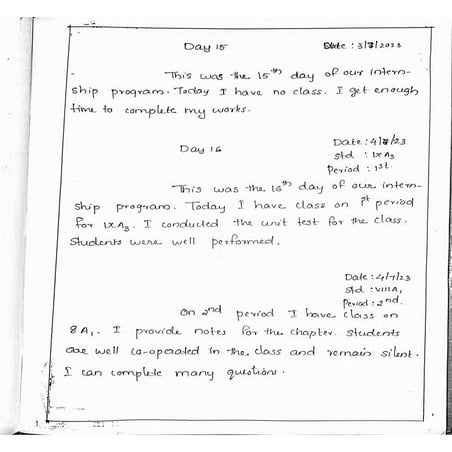 Day 15
Date : 3/7/2023
This was the 15th day of our intern-
ship program. Today I have no class. I get enough
time to complete my works.
Day 16
Date : 4/7/23
Std : IX A3
Period : 1st
This was the 16th day of our intern-
ship program. Today I have class on 1st period
for IX A3. I conducted the unit test for the class.
Students were well performed.
Date : 4/7/23
Std : VIII A1
Period : 2nd.
On 2nd period I have class on
8A1. I provide notes for the chapter. Students
are well co-operated in the class and remain silent.
I can complete many questions.